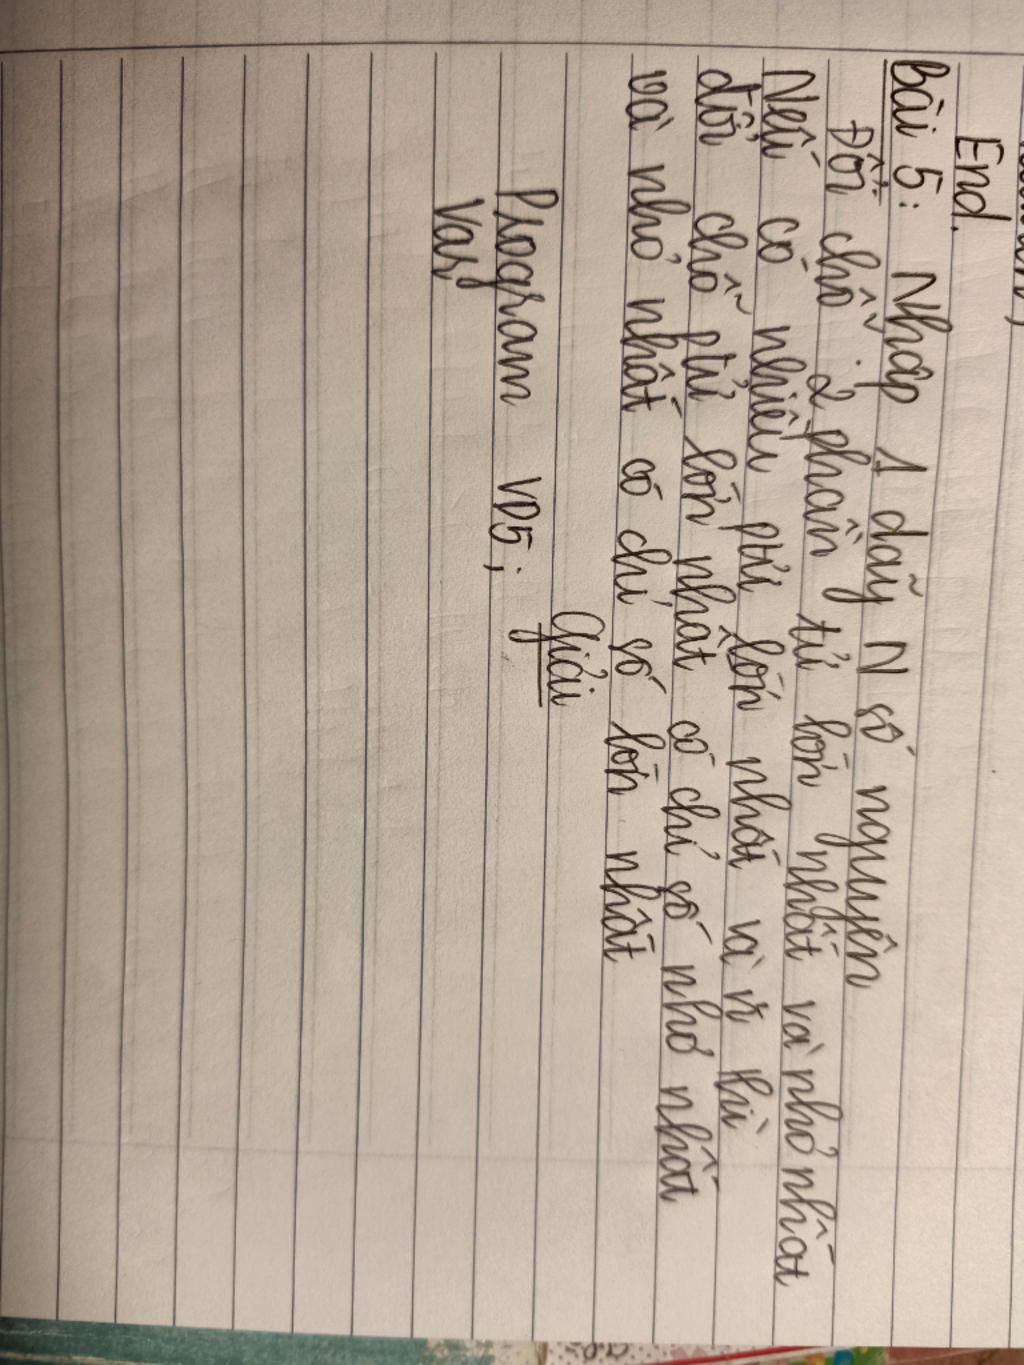 End.
Bài 5: Nhập 1 dãy N số nguyên
Đổi chỗ 2 phần tử lớn nhất và nhỏ nhất
Nếu có nhiều ptử lớn nhất và thì
đổi chỗ ptử lớn nhất có chỉ số nhỏ nhất
và nhỏ nhất có chỉ số lớn nhất
Giải
Program VD5;
Var